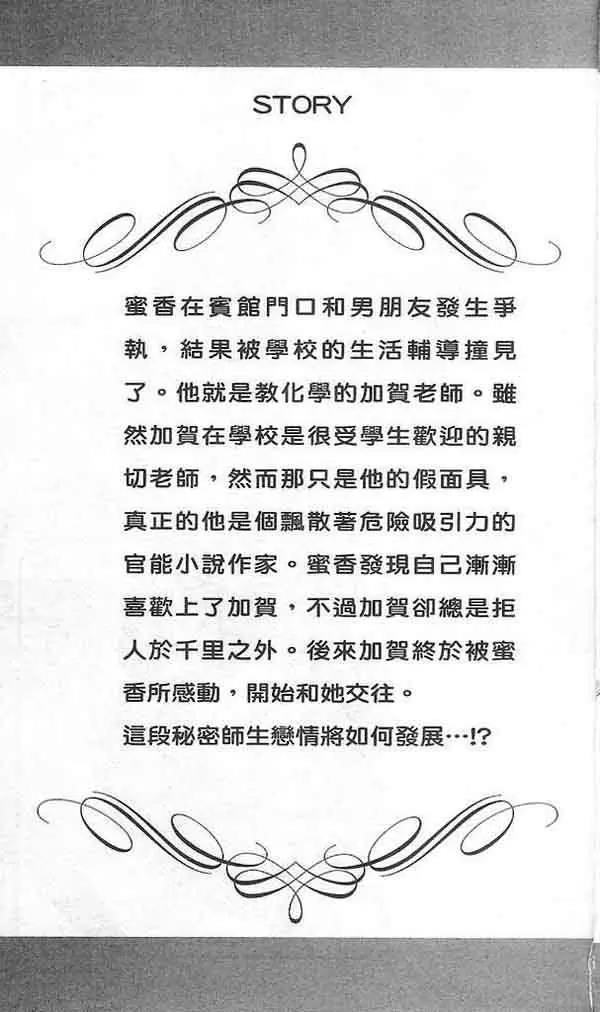 STORY
蜜香在賓館門口和男朋友發生爭
執，結果被學校的生活輔導撞見
了。他就是教化學的加賀老師。雖
然加賀在學校是很受學生歡迎的親
切老師，然而那只是他的假面具，
真正的他是個飄散著危險吸引力的
官能小說作家。蜜香發現自己漸漸
喜歡上了加賀，不過加賀卻總是拒
人於千里之外。後來加賀終於被蜜
香所感動，開始和她交往。
這段秘密師生戀情將如何發展…!?